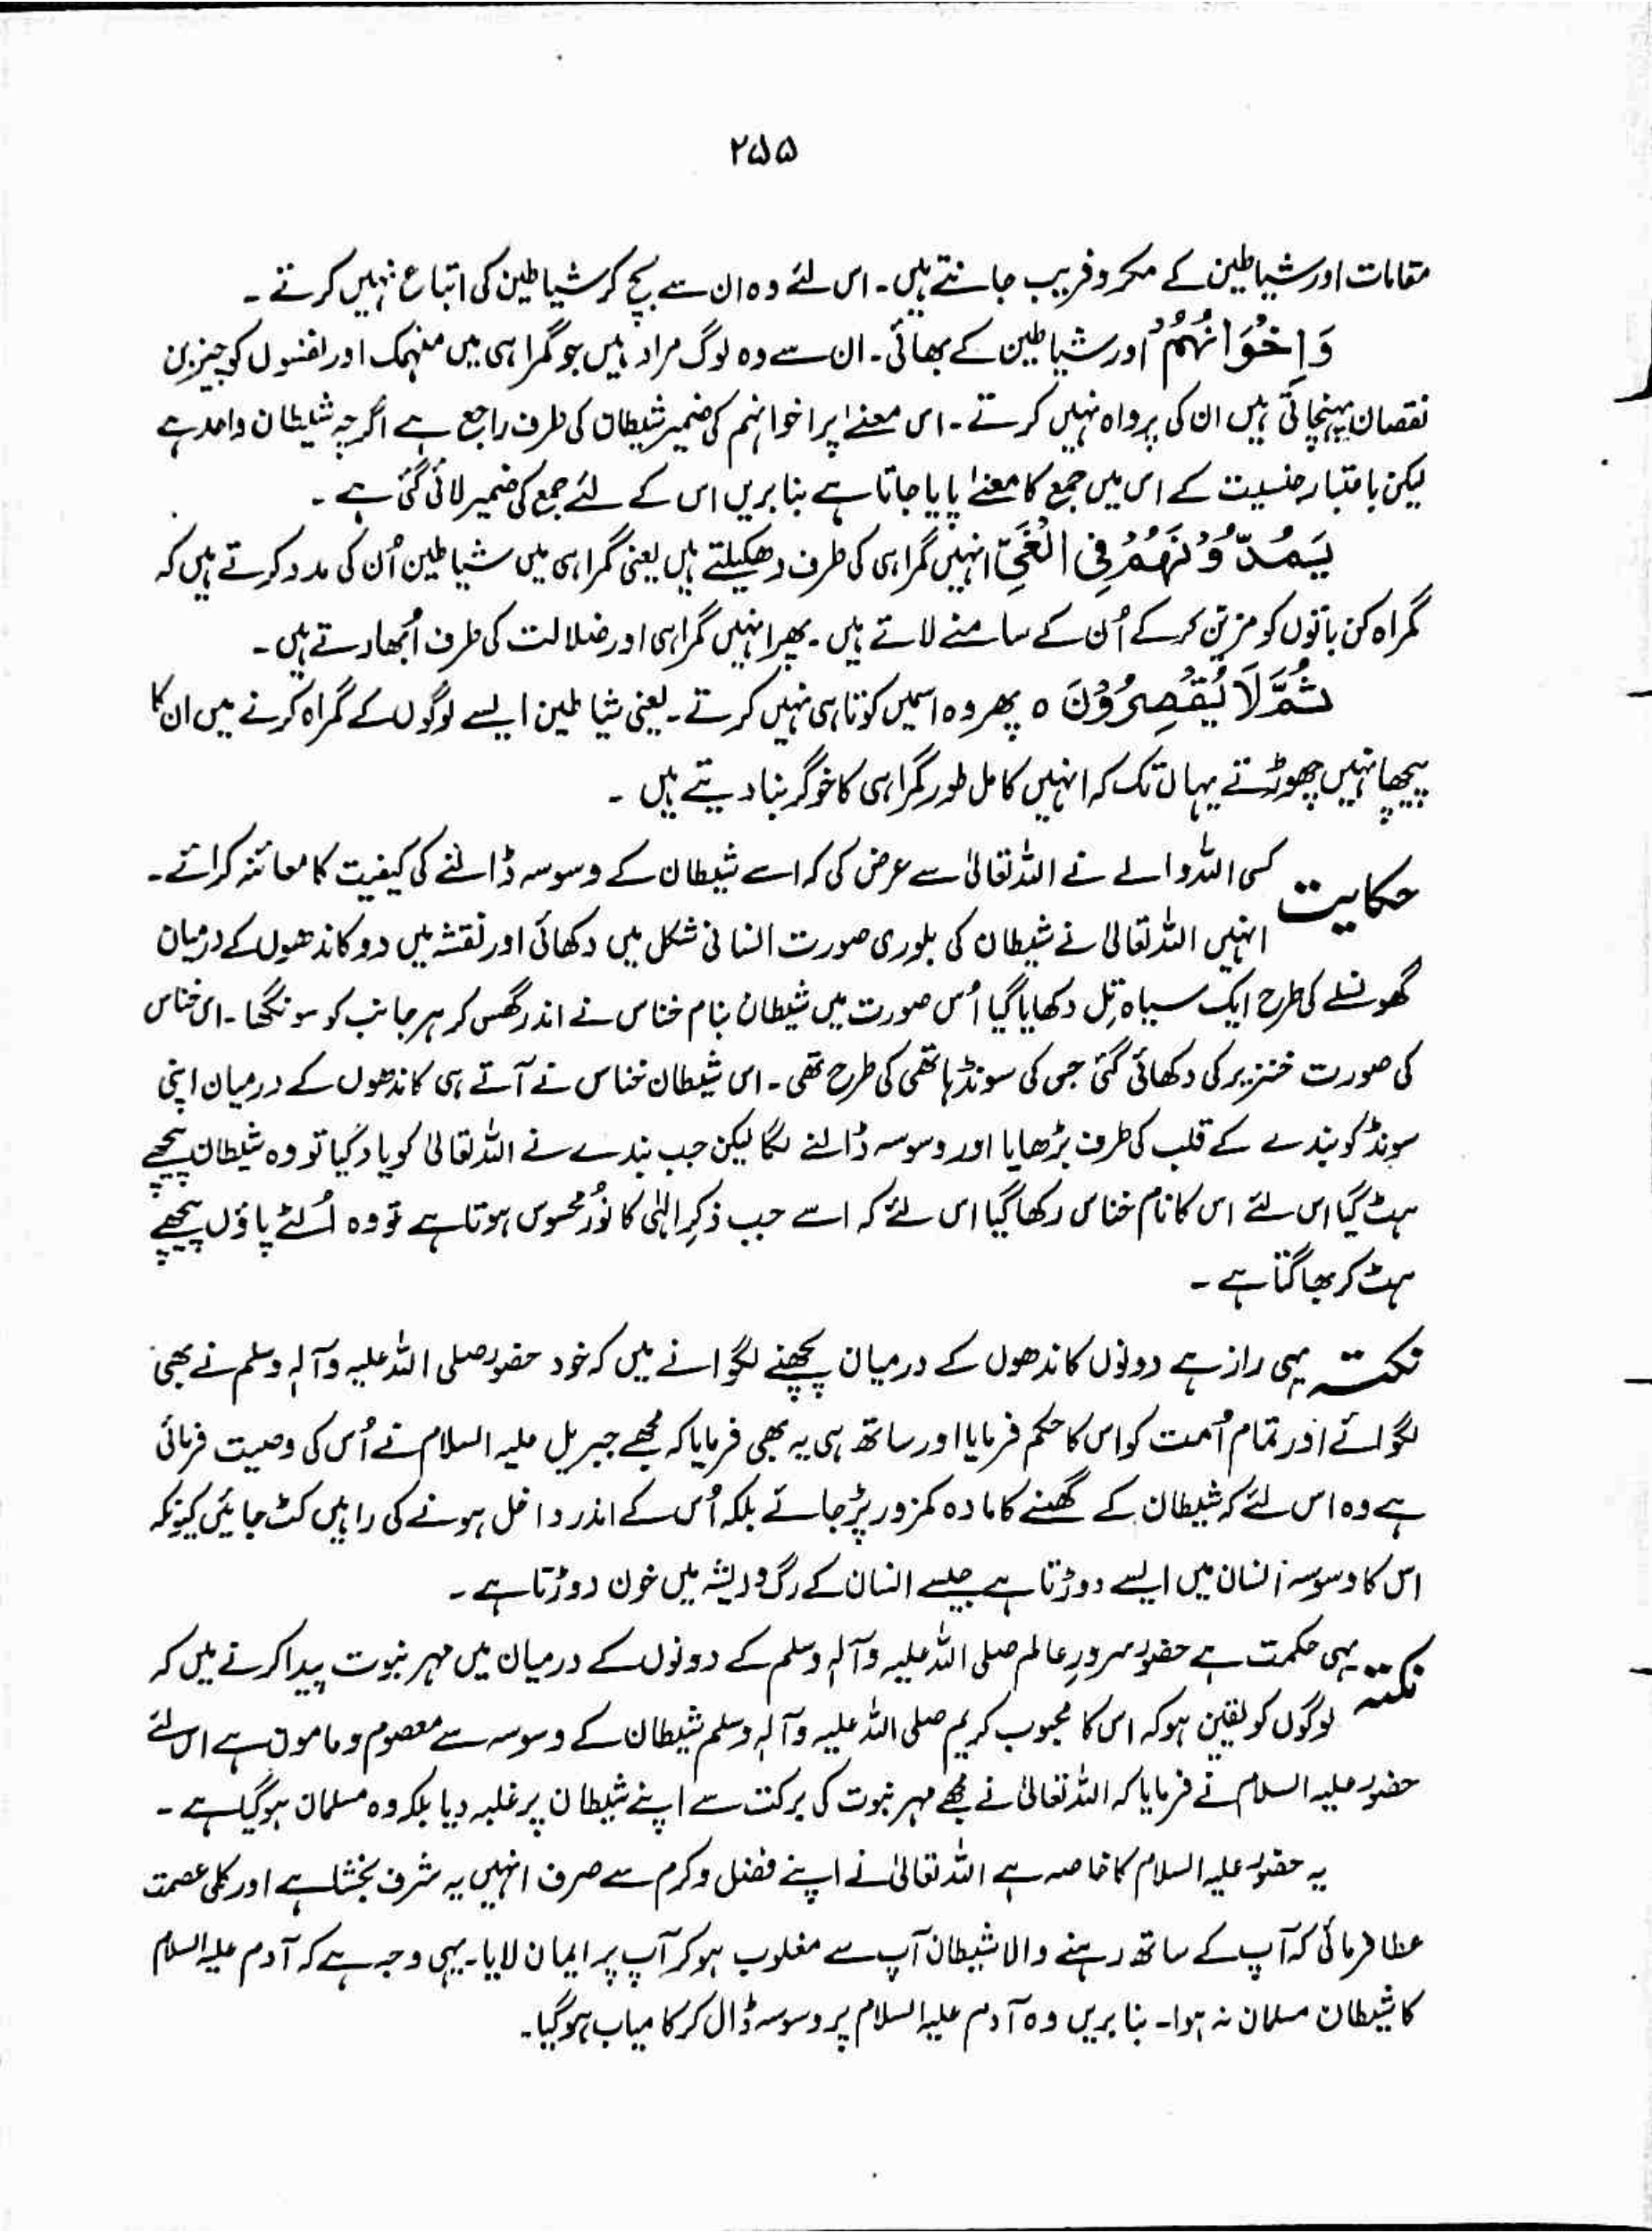 ۲۵۵
مقامات اور شیاطین کے مکر و فریب جانتے ہیں۔ اس لئے وہ ان سے بچ کر شیاطین کی اتباع نہیں کرتے ۔
وَاِخْوَانُهُمْ اور شیاطین کے بھائی۔ ان سے وہ لوگ مراد ہیں جو گمراہی میں منہمک اور نفسوں کو جو چیزیں
نقصان پہنچاتی ہیں ان کی پرواہ نہیں کرتے۔ اس معنےٰ پر اخوانہم کی ضمیر شیطان کی طرف راجع ہے اگرچہ شیطان واحد ہے
لیکن باعتبار جنسیت کے اس میں جمع کا معنےٰ پایا جاتا ہے بنا بریں اس کے لئے جمع کی ضمیر لائی گئی ہے ۔
یَمُدُّوْنَهُمْ فِی الْغَیِّ انہیں گمراہی کی طرف دھکیلتے ہیں یعنی گمراہی میں شیاطین اُن کی مدد کرتے ہیں کہ
گمراہ کن باتوں کو مزین کرکے اُن کے سامنے لاتے ہیں۔ پھر انہیں گمراہی اور ضلالت کی طرف اُبھارتے ہیں ۔
ثُمَّ لَا یُقْصِرُوْنَ ٥ پھر وہ اسمیں کوتاہی نہیں کرتے۔ یعنی شیاطین ایسے لوگوں کے گمراہ کرنے میں ان کا
پیچھا نہیں چھوڑتے یہاں تک کہ انہیں کامل طور گمراہی کا خوگر بنا دیتے ہیں ۔
حکایت کسی اللہ والے نے اللہ تعالیٰ سے عرض کی کہ اسے شیطان کے وسوسہ ڈالنے کی کیفیت کا معائنہ کرائے۔
انہیں اللہ تعالیٰ نے شیطان کی بلوری صورت انسانی شکل میں دکھائی اور نقشہ میں دو کاندھوں کے درمیان
گھونسلے کی طرح ایک سیاہ تِل دکھایا گیا اُس صورت میں شیطان بنام خناس نے اندر گھس کر ہر جانب کو سونگھا۔ اس خناس
کی صورت خنزیر کی دکھائی گئی جس کی سونڈ ہاتھی کی طرح تھی۔ اس شیطان خناس نے آتے ہی کاندھوں کے درمیان اپنی
سونڈ کو بندے کے قلب کی طرف بڑھایا اور وسوسہ ڈالنے لگا لیکن جب بندے نے اللہ تعالیٰ کو یاد کیا تو وہ شیطان پیچھے
ہٹ گیا اس لئے اس کا نام خناس رکھا گیا اس لئے کہ اسے جب ذکرِ الٰہی کا نُور محسوس ہوتا ہے تو وہ اُلٹے پاؤں پیچھے
ہٹ کر بھاگتا ہے ۔
نکتہ یہی راز ہے دونوں کاندھوں کے درمیان پچھنے لگوانے میں کہ خود حضور صلی اللہ علیہ وآلہٖ وسلم نے بھی
لگوائے اور تمام اُمت کو اس کا حکم فرمایا اور ساتھ ہی یہ بھی فرمایا کہ مجھے جبریل علیہ السلام نے اُس کی وصیت فرمائی
ہے وہ اس لئے کہ شیطان کے گھسنے کا مادہ کمزور پڑ جائے بلکہ اُس کے اندر داخل ہونے کی راہیں کٹ جائیں کیونکہ
اس کا وسوسہ انسان میں ایسے دوڑتا ہے جیسے انسان کے رگ و ریشہ میں خون دوڑتا ہے ۔
نکتہ یہی حکمت ہے حضور سرورِ عالم صلی اللہ علیہ وآلہٖ وسلم کے دونوں کے درمیان میں مہر نبوت پیدا کرنے میں کہ
لوگوں کو یقین ہو کہ اس کا محبوب کریم صلی اللہ علیہ وآلہٖ وسلم شیطان کے وسوسہ سے معصوم و مامون ہے اس لئے
حضور علیہ السلام نے فرمایا کہ اللہ تعالیٰ نے مجھے مہر نبوت کی برکت سے اپنے شیطان پر غلبہ دیا بلکہ وہ مسلمان ہوگیا ہے ۔
یہ حضور علیہ السلام کا خاصہ ہے اللہ تعالیٰ نے اپنے فضل و کرم سے صرف انہیں یہ شرف بخشا ہے اور کلی عصمت
عطا فرمائی کہ آپ کے ساتھ رہنے والا شیطان آپ سے مغلوب ہو کر آپ پر ایمان لایا۔ یہی وجہ ہے کہ آدم علیہ السلام
کا شیطان مسلمان نہ ہوا۔ بنا بریں وہ آدم علیہ السلام پر وسوسہ ڈال کر کامیاب ہوگیا۔